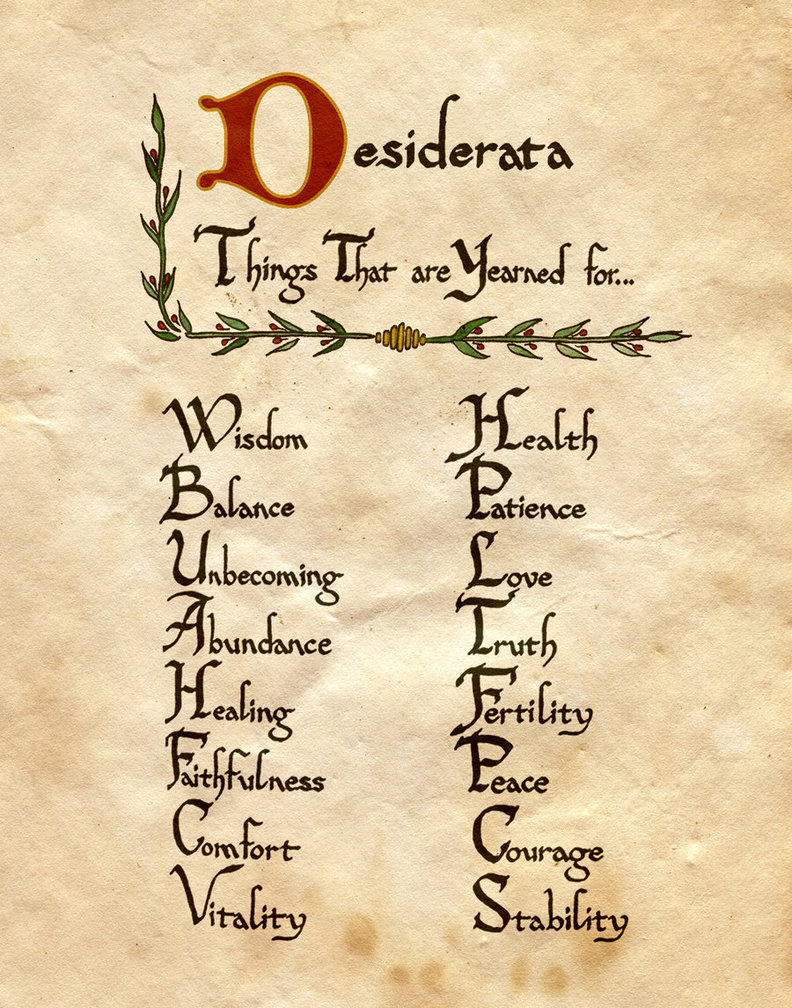 Desiderata
Things That are Yearned for...
Wisdom
Balance
Unbecoming
Abundance
Healing
Faithfulness
Comfort
Vitality
Health
Patience
Love
Truth
Fertility
Peace
Courage
Stability